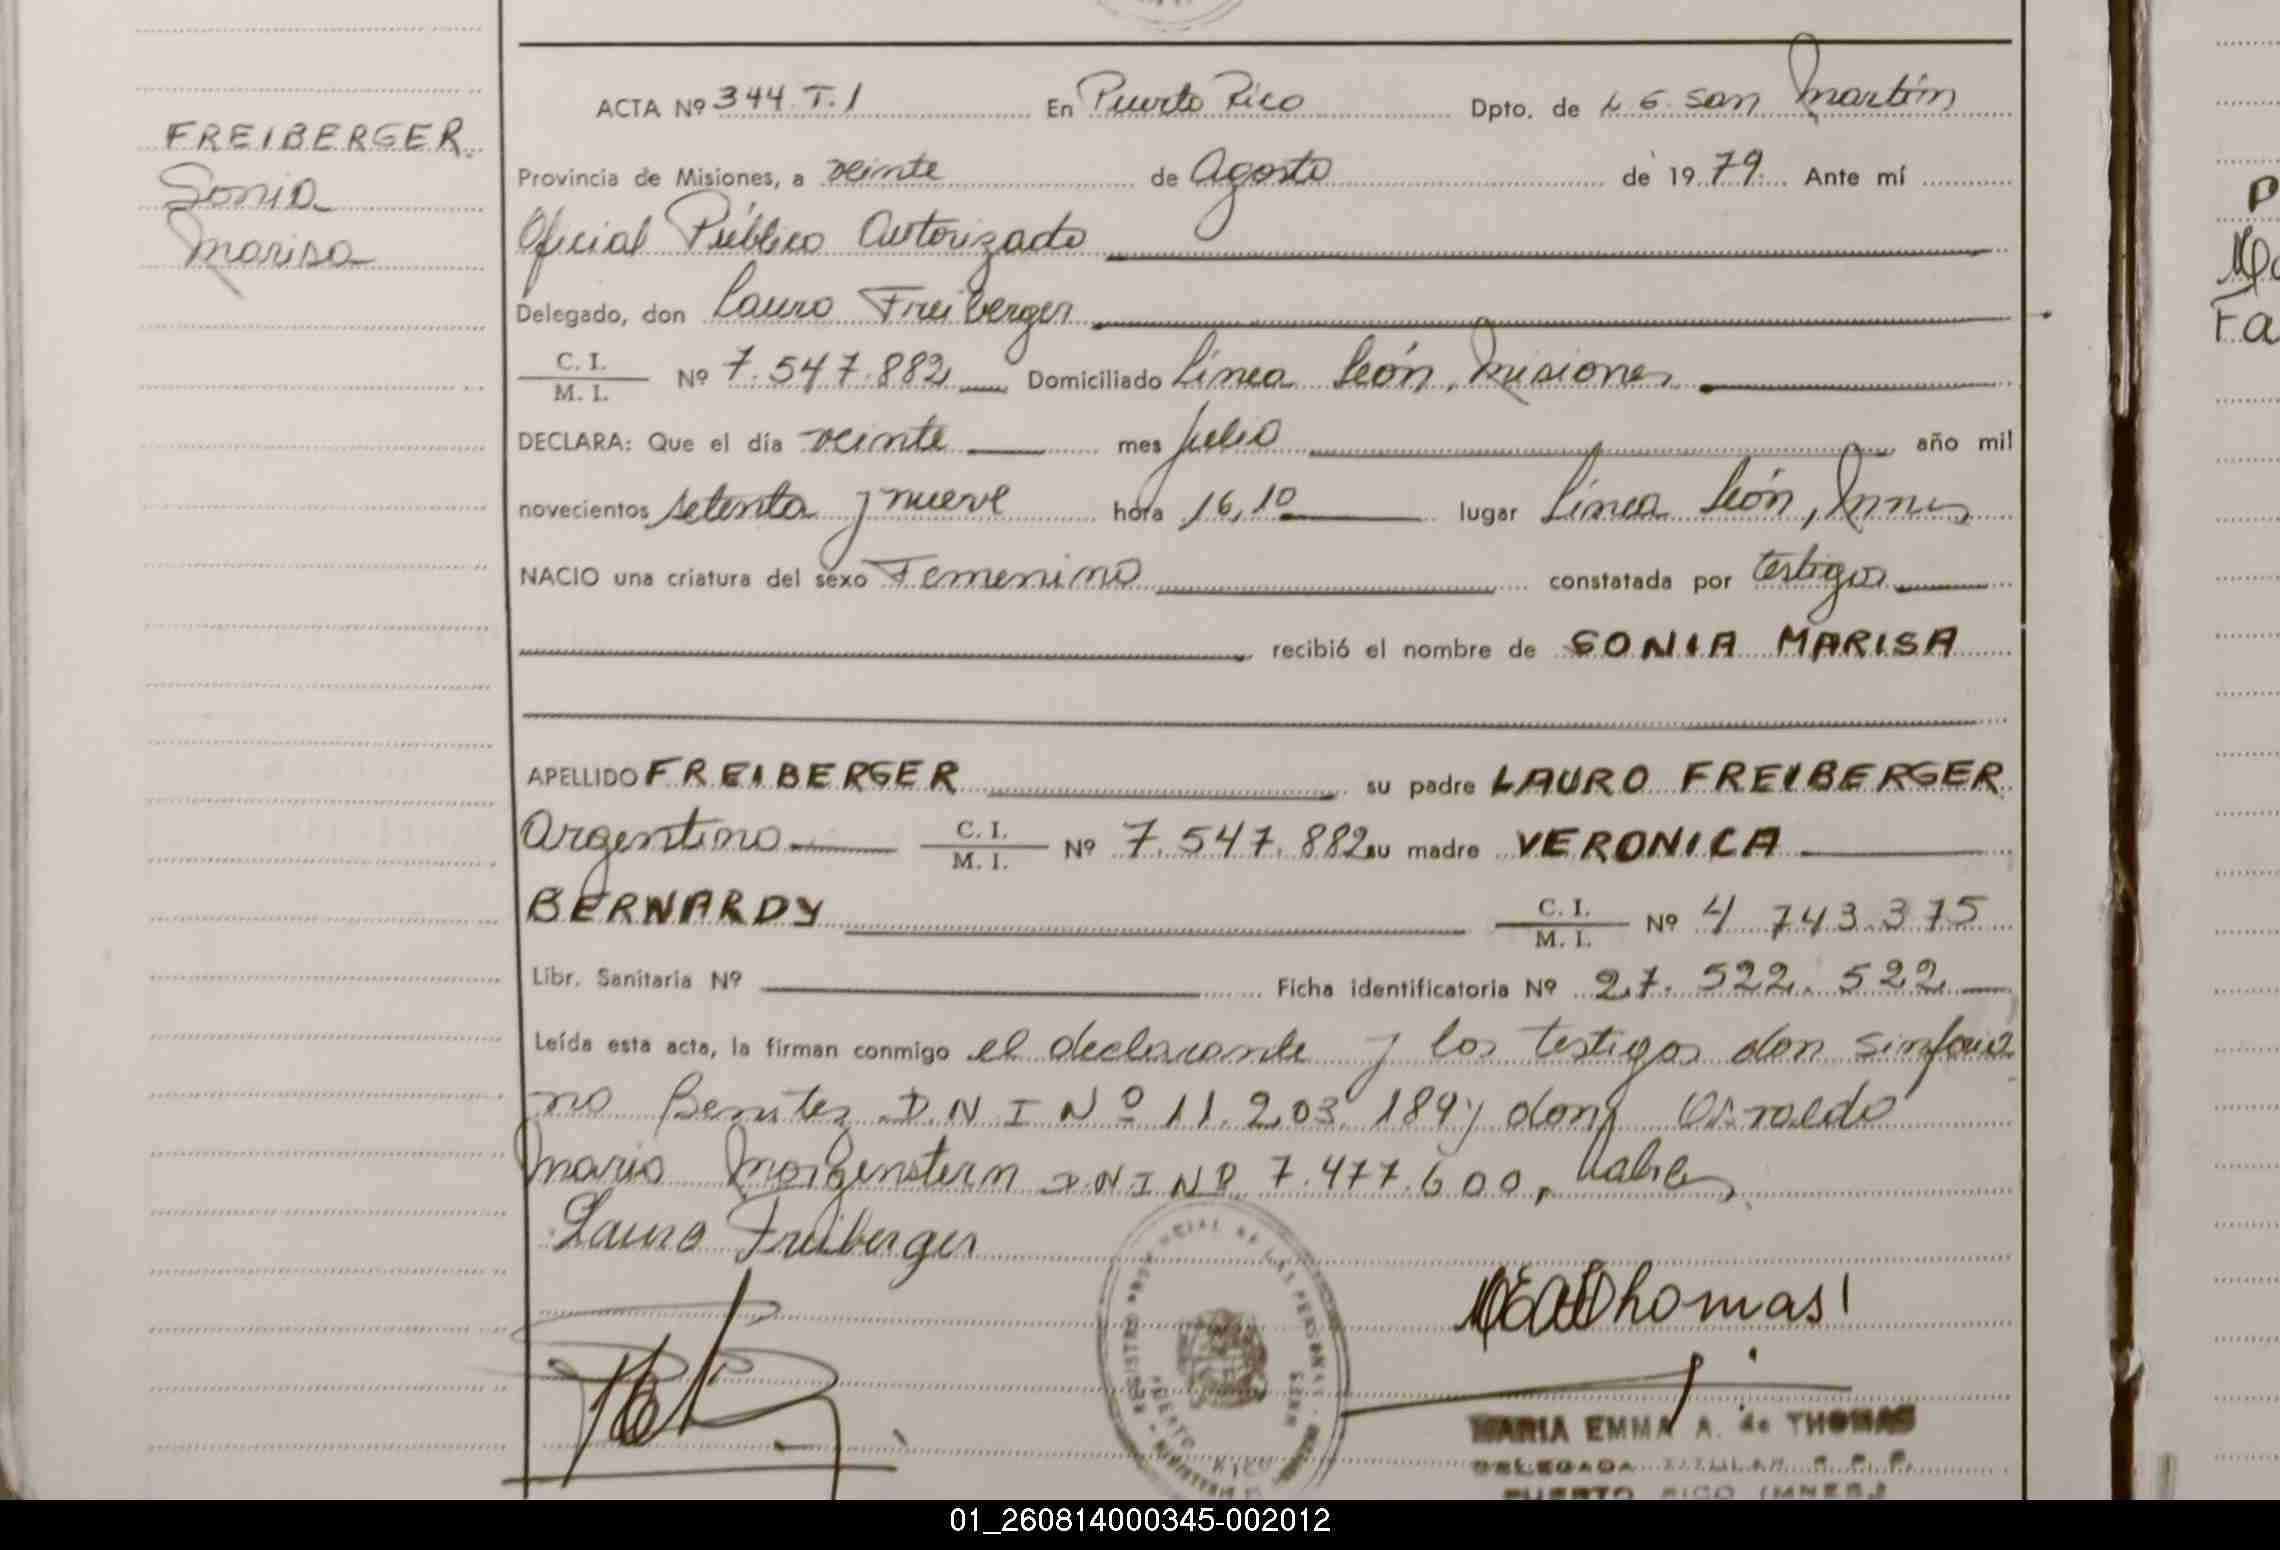 FREIBERGER
Sonia
Marisa
ACTA Nº 344 T.1 En Puerto Rico Dpto. de L G. San Martín
Provincia de Misiones, a veinte de Agosto de 1979. Ante mí
Oficial Público Autorizado
Delegado, don Lauro Freiberger
C. I.
M. I. Nº 7.547.882 Domiciliado Línea León, Misiones
DECLARA: Que el día veinte mes Julio año mil
novecientos setenta y nueve hora 16,10 lugar Línea León, Mnes
NACIO una criatura del sexo Femenino constatada por testigos
recibió el nombre de SONIA MARISA
APELLIDO FREIBERGER su padre LAURO FREIBERGER
Argentino C. I.
M. I. Nº 7.547.882 su madre VERONICA
BERNARDY C. I.
M. I. Nº 4 743.375
Libr. Sanitaria Nº Ficha identificatoria Nº 27.522.522
Leída esta acta, la firman conmigo el declarante y los testigos don
no Benitez D.N I Nº 11.203.189 y don Osvaldo
Mario Morgenstern D N I Nº 7.477.600,
Lauro Freiberger
Thomas
MARIA EMMA A. de THOMAS
DELEGADA TITULAR R. P. P.
PUERTO RICO (MNES.)
REGISTRO PROVINCIAL DE LAS PERSONAS
PUERTO RICO
MNES
01_260814000345-002012